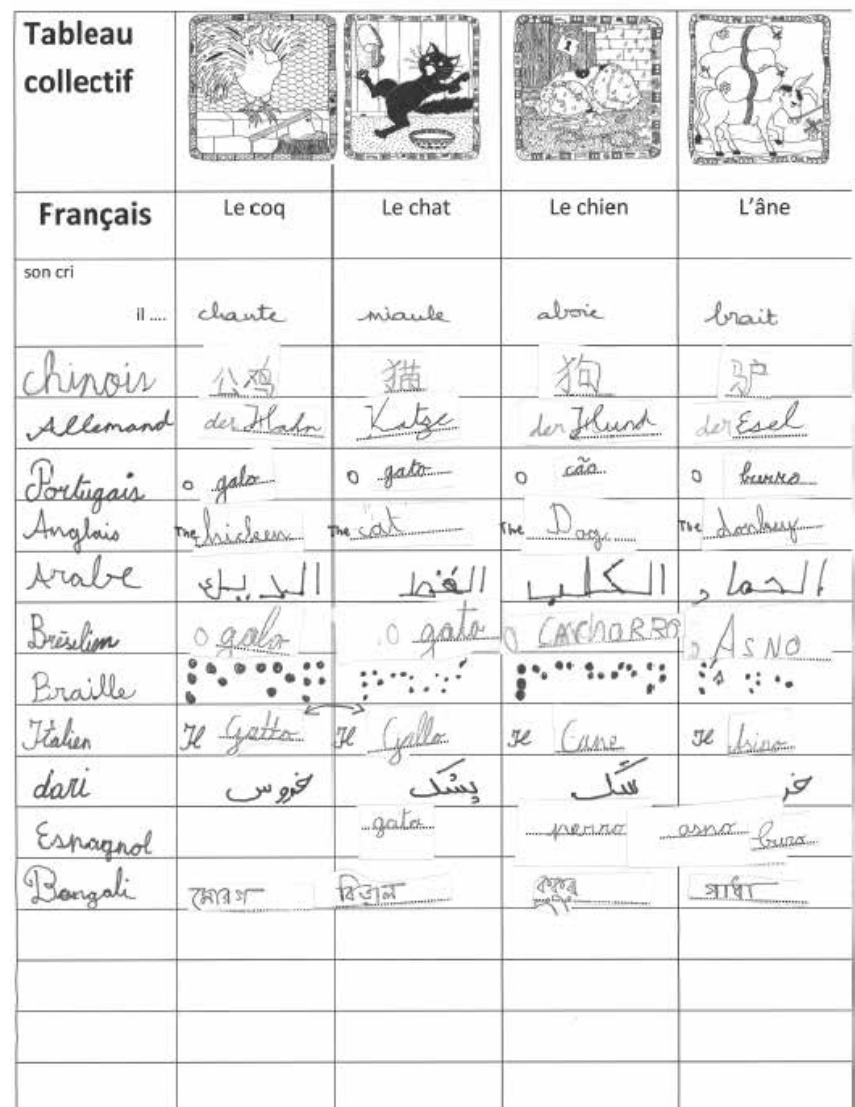 Tableau
collectif
Français Le coq Le chat Le chien L'âne
son cri
il .... chante miaule aboie brait
chinois 公鸡 猫 狗 驴
Allemand der Hahn Katze der Hund der Esel
Portugais o galo o gato o cão o burro
Anglais The chicken The cat The Dog The donkey
Arabe الديك القط الكلب الحمار
Brésilien o galo o gato o CAchoRRO o ASNO
Braille
Italien Il Gatto Il Gallo Il Cane Il Asino
dari خروس پشک سگ خر
Espagnol gato perro asno buro
Bengali মোরগ বিড়াল গাধা